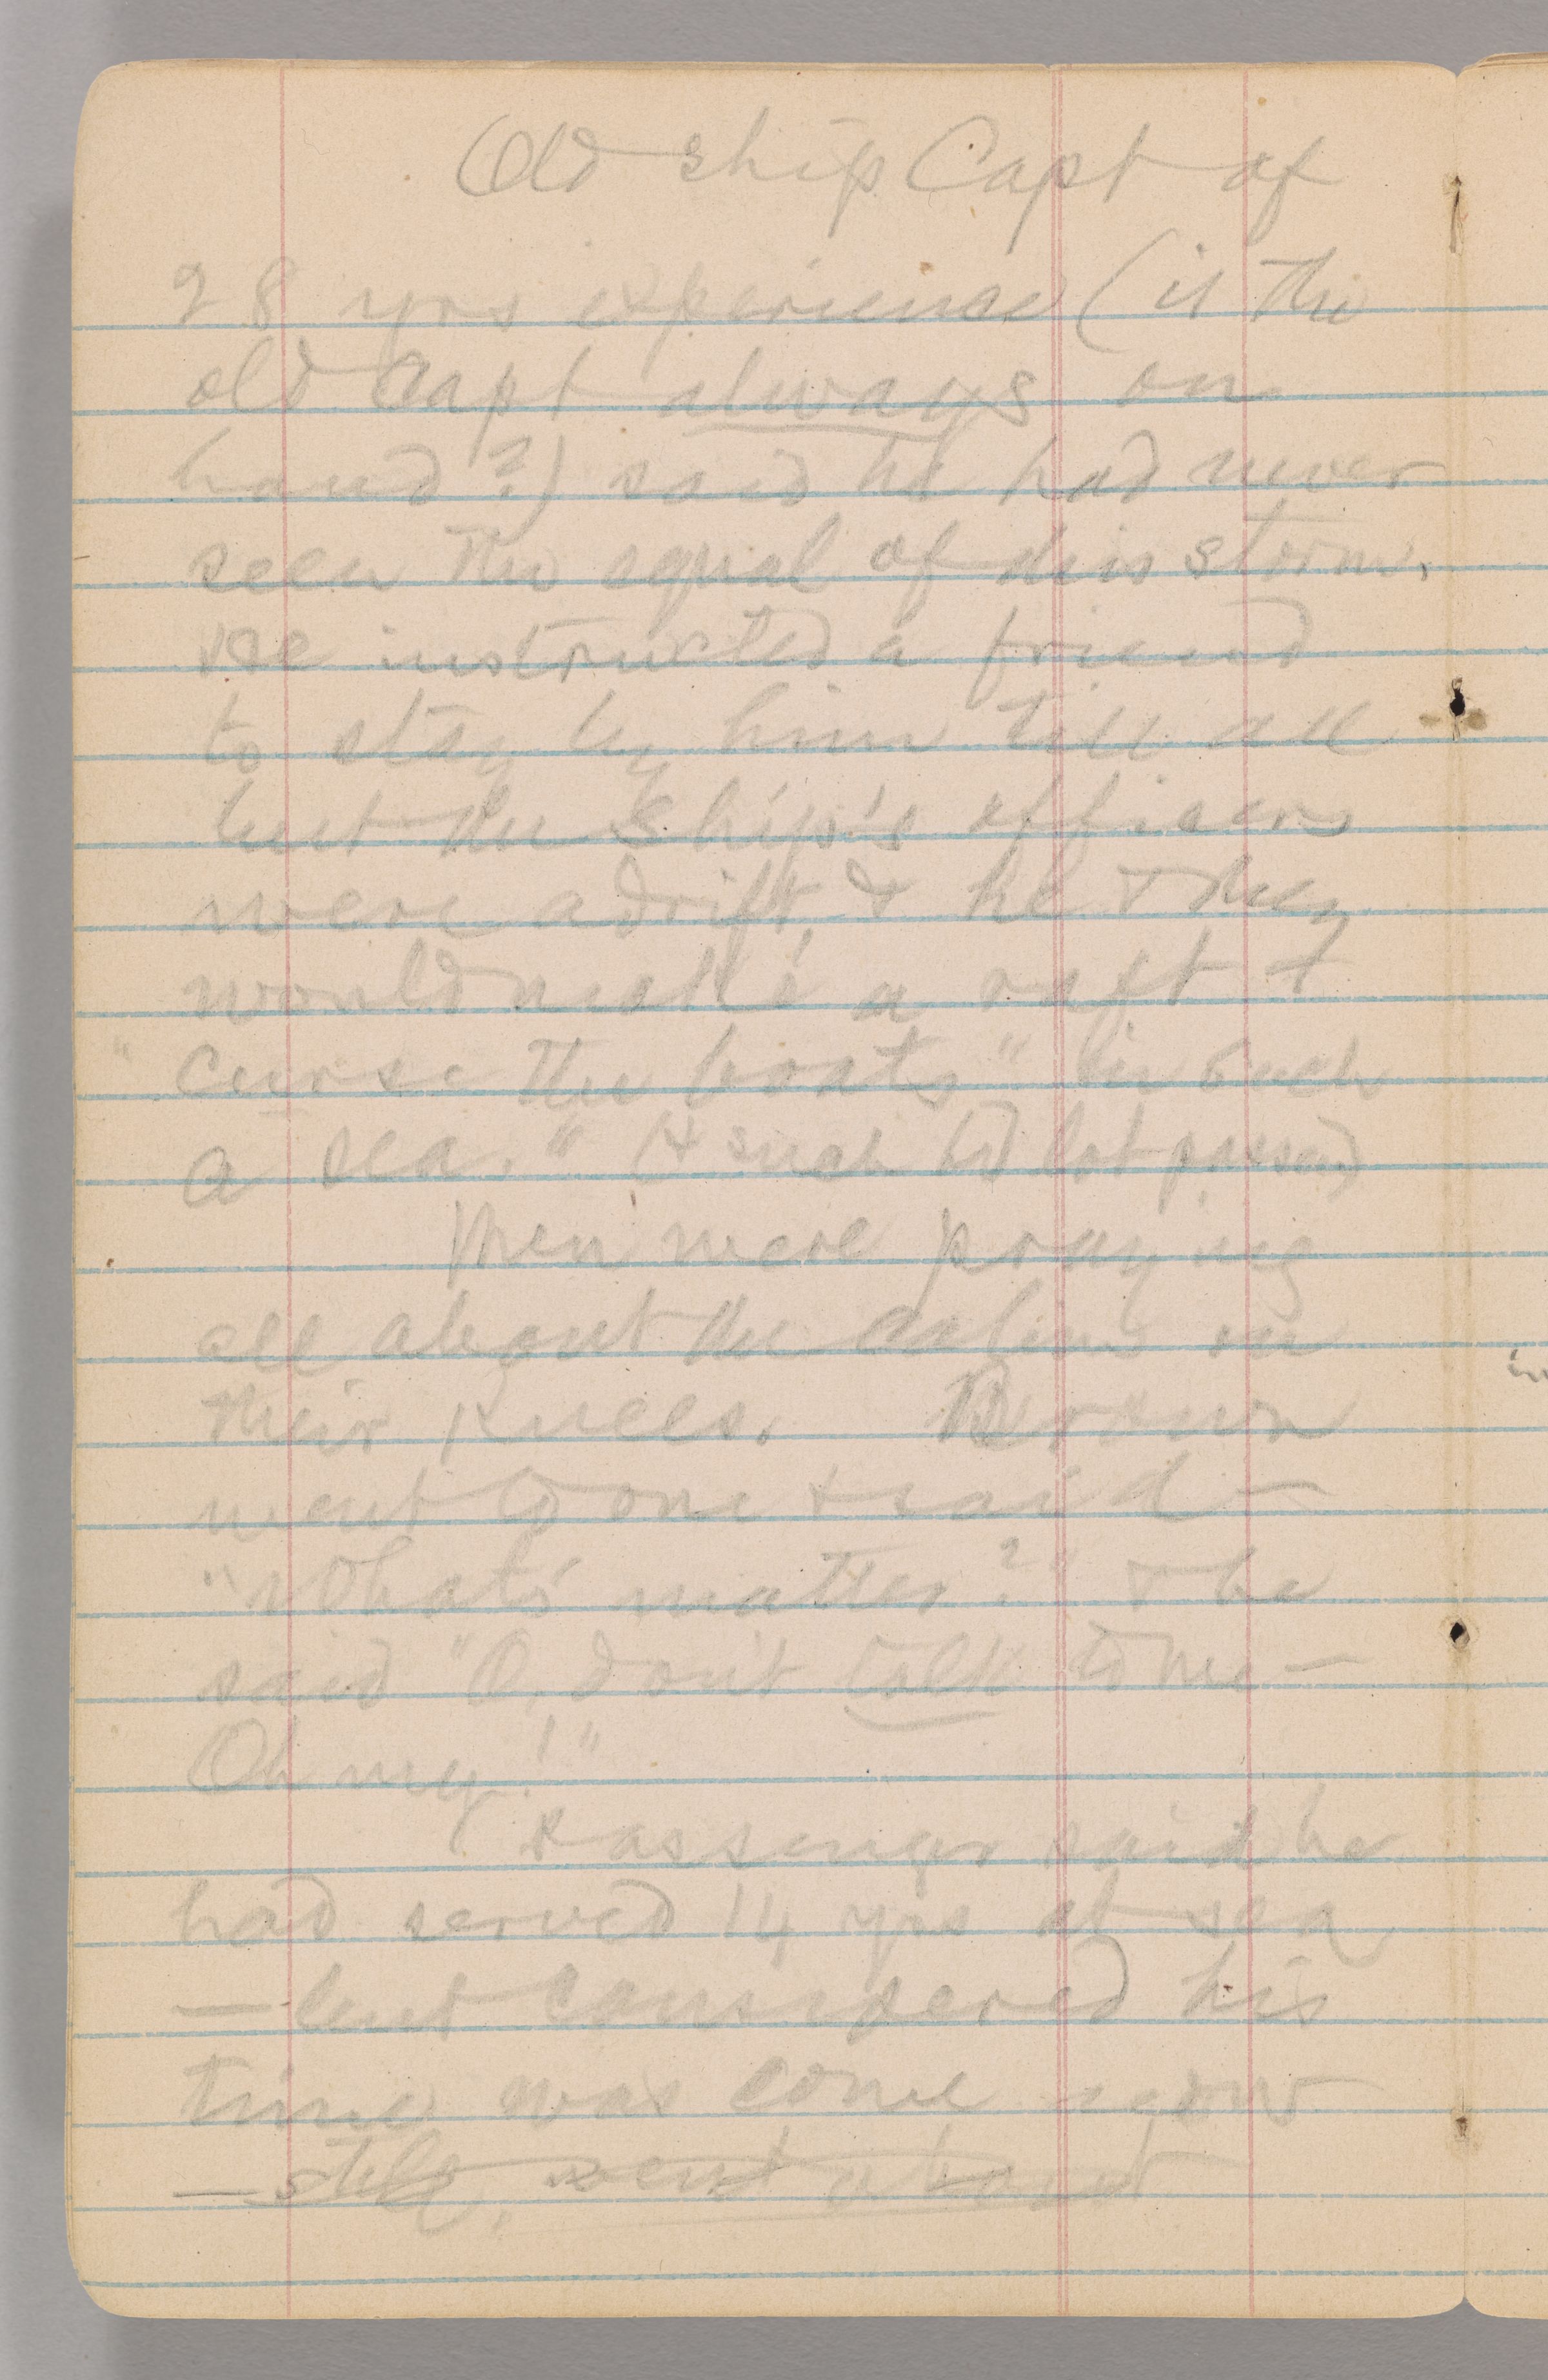 Old ship Capt of
28 yrs experience (is the
old Capt always on
hand?) said he had never
seen the equal of this storm.
He instructed a friend
to stay by him till all
but the Ship's officers
were adrift, & he & they
would make a raft &
"curse the boats" in such
a sea." (& such
Men were praying
all about the cabins on
their knees. Brown
went to one & said—
"What's matter?" & he
said "O, don't talk to me—
Oh my!"
Passenger said he
had served 14 yrs at sea
—but considered his
time was come now
— went about
in